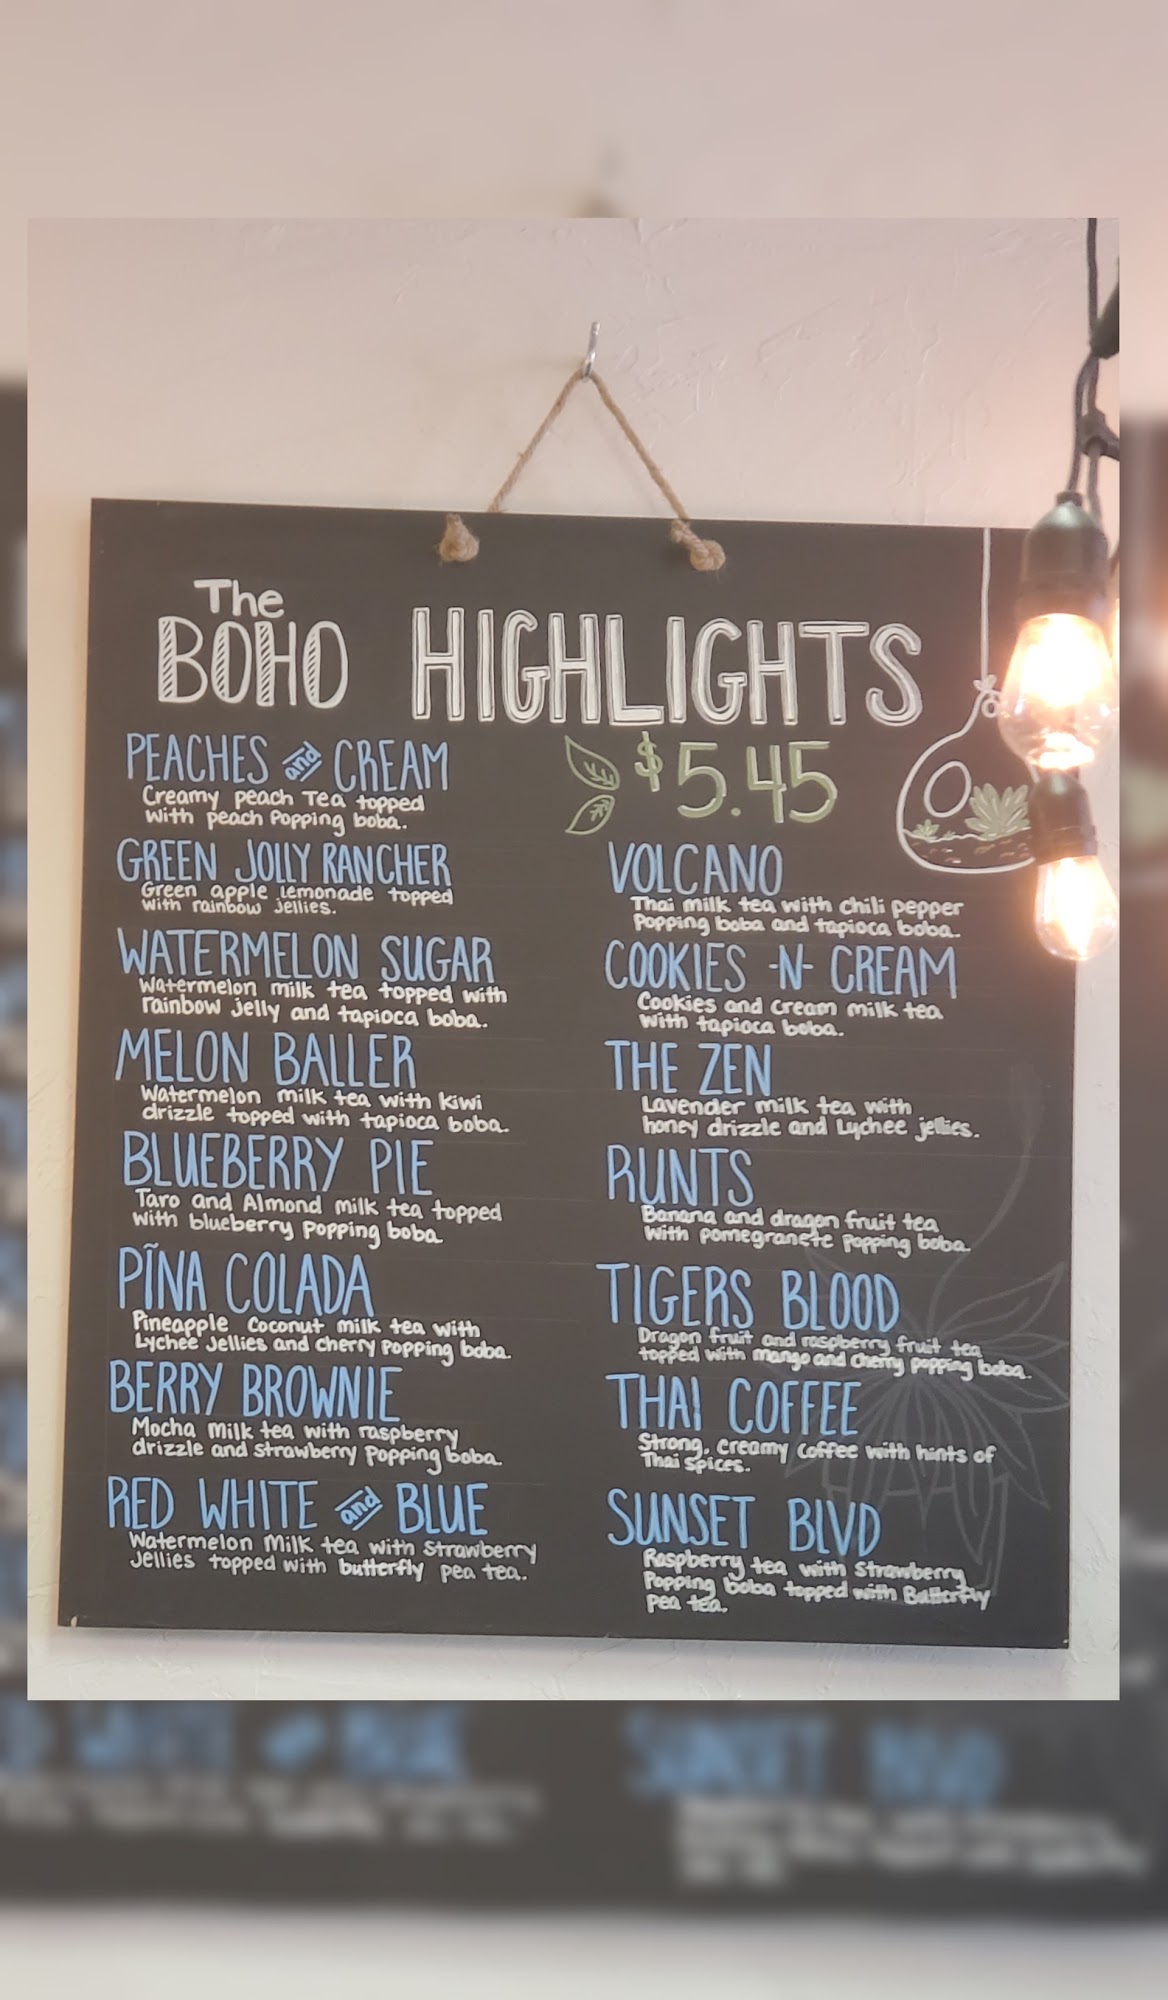 The
BOHO HIGHLIGHTS
$5.45
PEACHES and CREAM
Creamy peach Tea topped
with peach Popping boba.
GREEN JOLLY RANCHER
Green apple lemonade topped
with rainbow jellies.
WATERMELON SUGAR
Watermelon milk tea topped with
rainbow jelly and tapioca boba.
MELON BALLER
Watermelon milk tea with kiwi
drizzle topped with tapioca boba.
BLUEBERRY PIE
Taro and Almond milk tea topped
with blueberry popping boba
PĨNA COLADA
Pineapple Coconut milk tea with
Lychee Jellies and cherry Popping boba.
BERRY BROWNIE
Mocha milk tea with raspberry
drizzle and strawberry Popping boba.
RED WHITE and BLUE
Watermelon Milk tea with Strawberry
Jellies topped with butterfly pea tea.
VOLCANO
Thai milk tea with chili pepper
Popping boba and tapioca boba.
COOKIES -N- CREAM
Cookies and cream milk tea
with tapioca boba.
THE ZEN
Lavender milk tea with
honey drizzle and Lychee jellies.
RUNTS
Banana and dragon fruit tea
with pomegranete popping boba.
TIGERS BLOOD
Dragon fruit and raspberry fruit tea
topped with mango and cherry popping boba.
THAI COFFEE
Strong, creamy coffee with hints of
Thai spices.
SUNSET BLVD
Raspberry tea with Strawberry
Popping boba topped with Butterfly
pea tea.